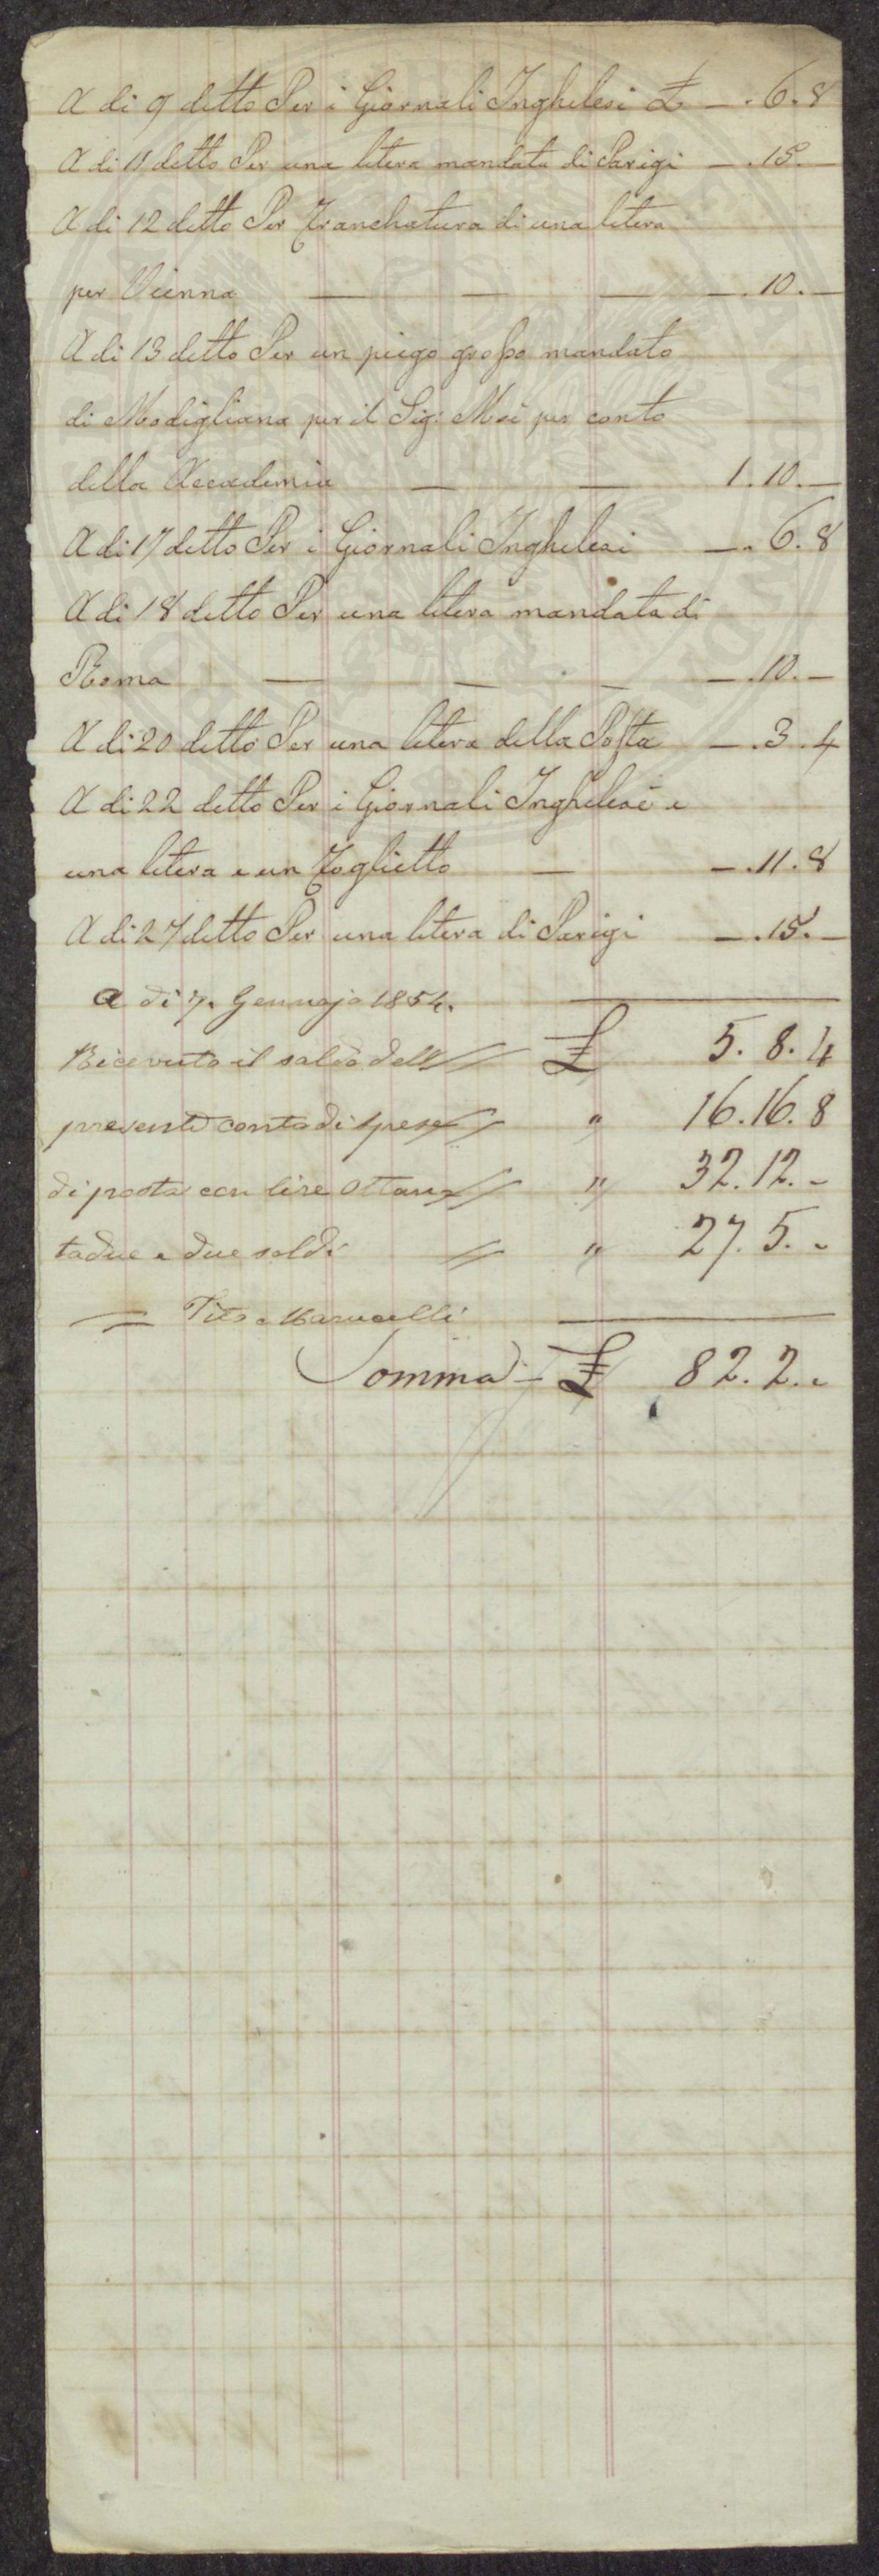 A di 9 detto Per i Giornali Inghelesi £ —. 6. 8
A di 11 detto Per una litera mandata di Parigi —. 15. —
A di 12 detto Per Franchatura di una litera
per Vienna — — — —. 10. —
A di 13 detto Per un piego grosso mandato
di Modigliana per il Sig: Mei per conto
della Accademia — — 1. 10. —
A di 17 detto Per i Giornali Inghelesi —. 6. 8
A di 18 detto Per una litera mandata di
Roma — — — —. 10. —
A di 20 detto Per una litera della Posta —. 3. 4
A di 22 detto Per i Giornali Inghelesi e
una litera e un Foglietto — —. 11. 8
A di 27 detto Per una litera di Parigi —. 15. —
a di 7. Gennajo 1854.
Ricevuto il saldo dell // £ 5. 8. 4
presente conto di spese // " 16. 16. 8
di posta con lire Ottan // " 32. 12. -
tadue e due soldi // " 27. 5. -
= Tito Marucelli
Somma - £ 82. 2. -